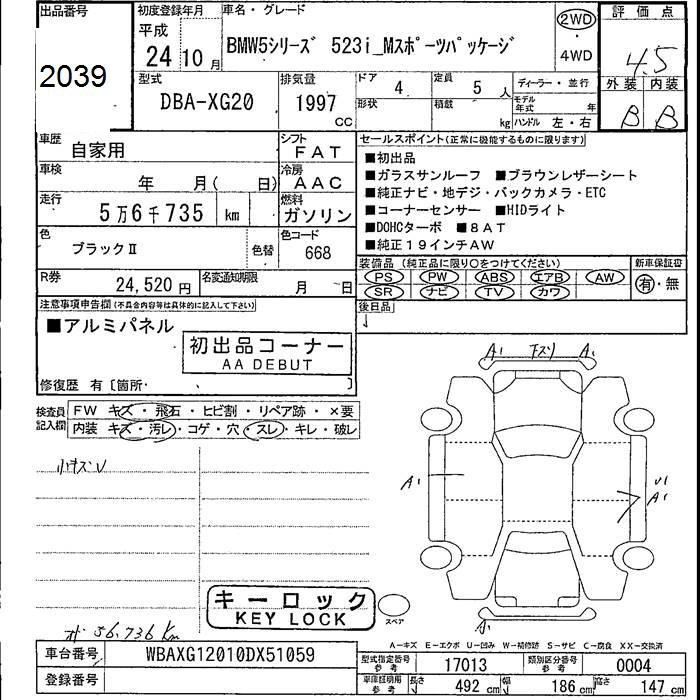 出品番号
2039
初度登録年月
平成
24年10月
車名・グレード
BMW5シリーズ 523i_Mスポーツパッケージ
2WD
・
4WD
評価点
4.5
外装 内装
B B
型式
DBA-XG20
排気量
1997
CC
ドア 4
定員 5人
形状
積載 kg
ディーラー・並行
モデル年式 年
ハンドル 左・右
車歴
自家用
シフト
FAT
車検
年 月( 日)
冷房
AAC
走行
5万6千735 km
燃料
ガソリン
色
ブラックⅡ
色替
色コード
668
R券
24,520円
名変通知期限
月 日
セールスポイント(正常に機能するものに限ります)
■初出品
■ガラスサンルーフ ■ブラウンレザーシート
■純正ナビ・地デジ・バックカメラ・ETC
■コーナーセンサー ■HIDライト
■DOHCターボ ■8AT
■純正19インチAW
装備品(純正品に限り○をつけてください)
PS PW ABS エアB AW
SR ナビ TV カワ
新車保証書
有・無
後日品
注意事項申告欄(不具合内容等は具体的に記入して下さい)
■アルミパネル
初出品コーナー
AA DEBUT
修復歴 有[箇所・ ]
検査員記入欄
FW キズ・飛石・ヒビ割・リペア跡・×要
内装 キズ・汚レ・コゲ・穴・スレ・キレ・破レ
小キズU
A1 下スリ A1
A1
U1
A1
A1
キーロック
KEY LOCK
スペア
56,736 Km
A-キズ E-エクボ U-凹み W-補修跡 S-サビ C-腐食 XX-交換済
車台番号
WBAXG12010DX51059
登録番号
型式指定番号参考 17013
類別区分番号参考 0004
車庫証明用参考 長さ 492cm 幅 186cm 高さ 147cm